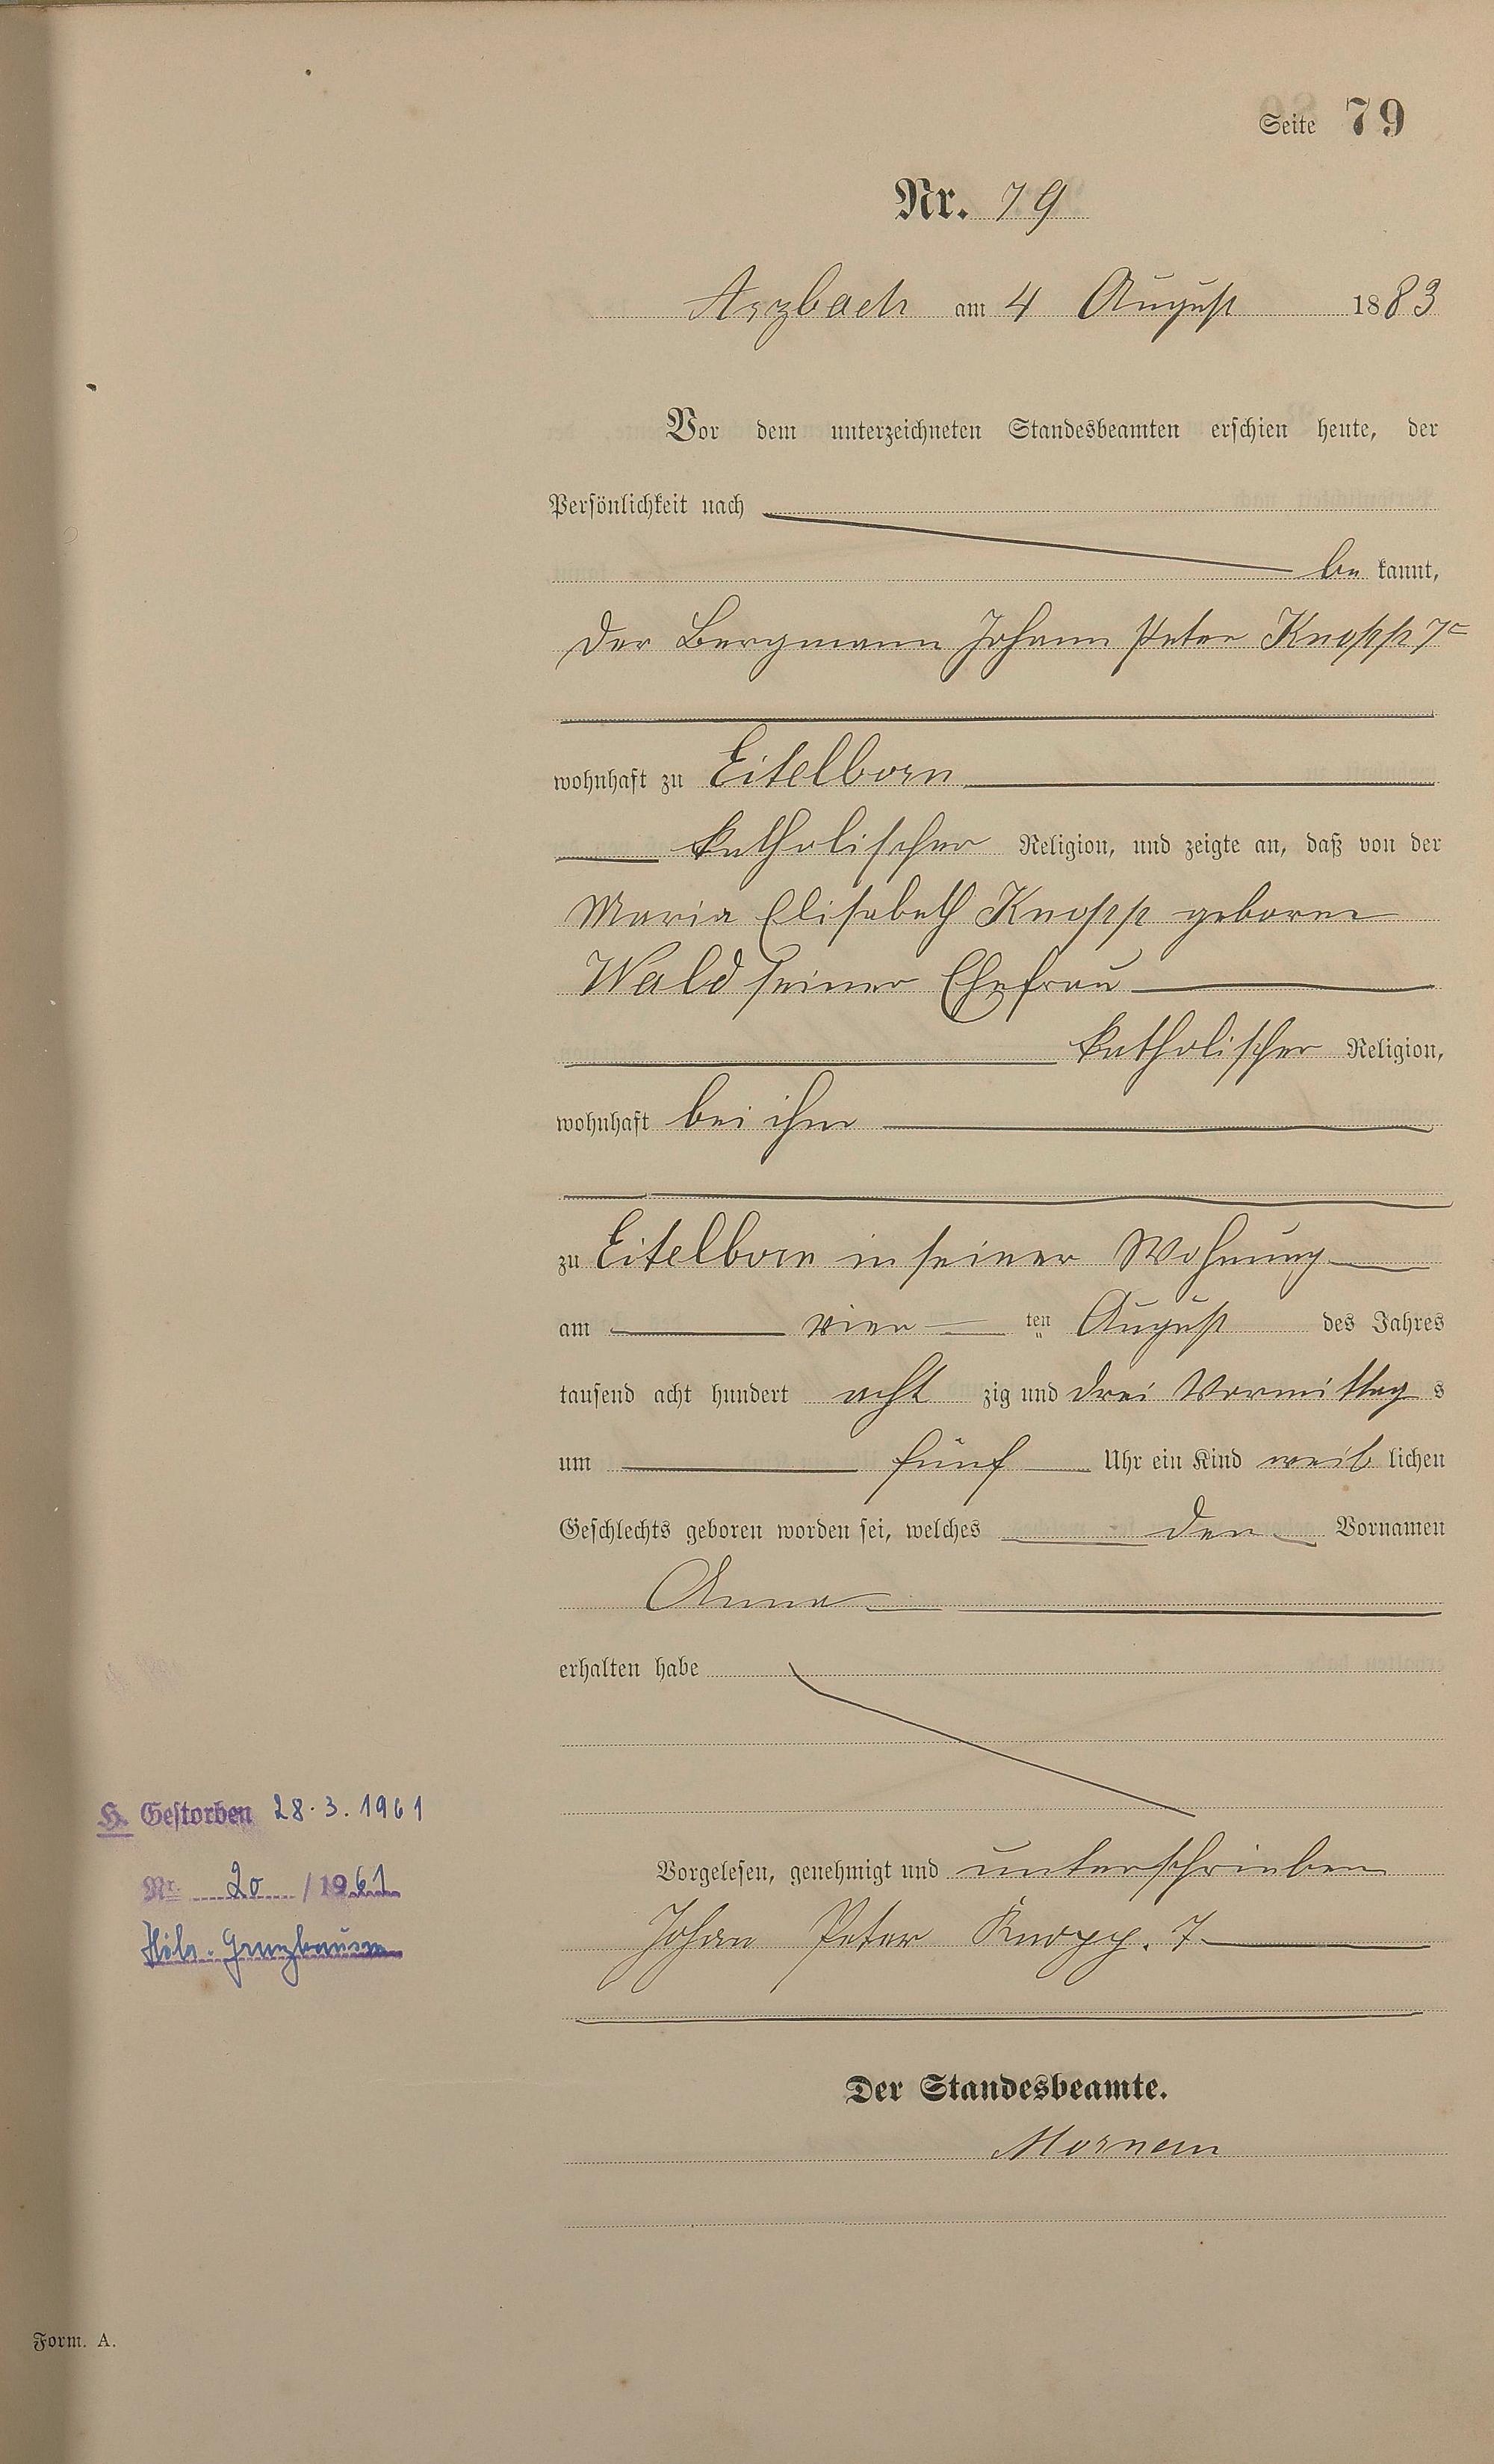 Seite 79
Nr. 79
Arzbach am 4 August 1883
Vor dem unterzeichneten Standesbeamten erschien heute, der
Persönlichkeit nach
bekannt,
der Bergmann Johann Peter Knopp 7r
wohnhaft zu Eitelborn
katholischer Religion, und zeigte an, daß von der
Maria Elisabeth Knopp geborne
Wald seiner Ehefrau
katholischer Religion,
wohnhaft bei ihm
zu Eitelborn in seiner Wohnung
am vier ten August des Jahres
tausend acht hundert acht zig und drei Vormittag s
um fünf Uhr ein Kind weib lichen
Geschlechts geboren worden sei, welches den Vornamen
Anna
erhalten habe
H. Gestorben 28.3.1961
Nr. 20 / 1961
Vorgelesen, genehmigt und unterschrieben
Johan Peter Knopp. 7
Der Standesbeamte.
Form. A.